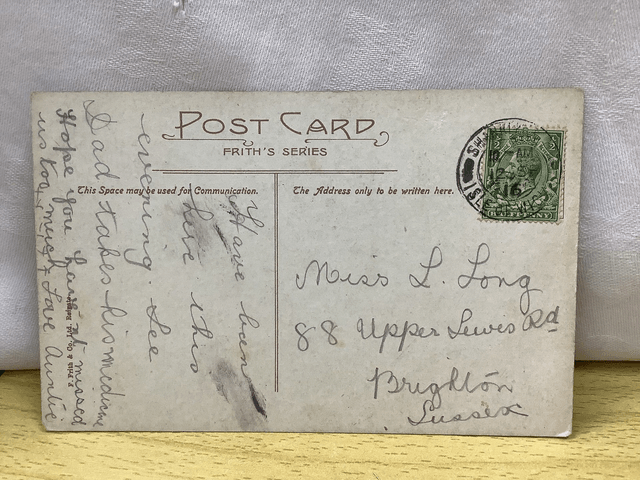 POST CARD
FRITH'S SERIES
This Space may be used for Communication.
The Address only to be written here.
Have been
here this
evening. See
Dad takes his medicine
Hope you haven't missed
us too much. Love Auntie
Miss L. Long
88 Upper Lewes Rd
Brighton
Sussex
16